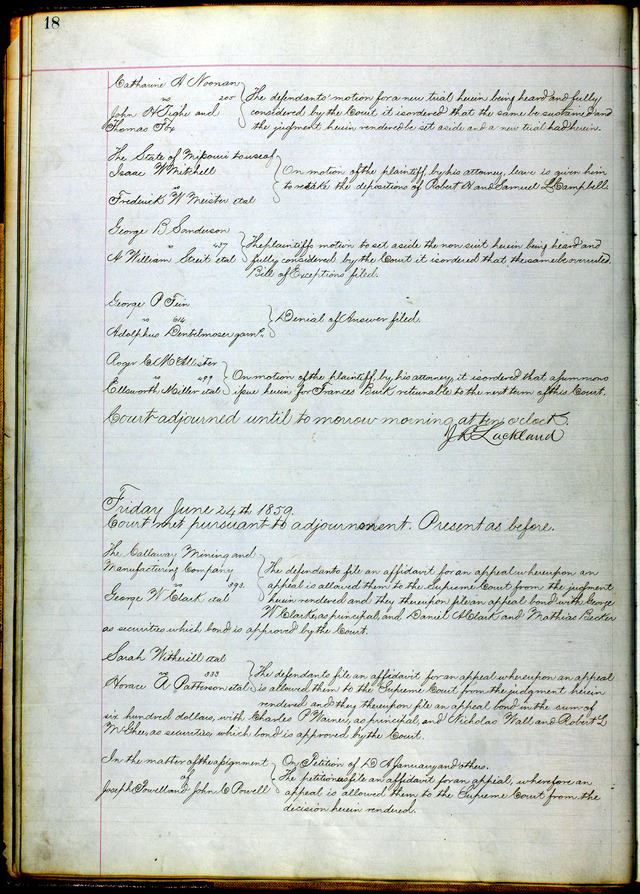 18
Catharine A Noonan
vs 200
John H Tighe and
Thomas Fox
The defendants motion for a new trial herein being heard and fully
considered by the Court it is ordered that the same be sustained and
the judgment herein rendered be set aside and a new trial had herein.
The State of Missouri to use of
Isaac W Mitchell
vs
Frederick W Meister etal
On motion of the plaintiff by his attorney, leave is given him
to retake the depositions of Robert N and Samuel L Campbell.
George B Sanderson
vs 437
A William Streit etal
The plaintiffs motion to set aside the non suit herein being heard and
fully considered by the Court it is ordered that the same be overruled
Bill of Exceptions filed.
George P Fein
vs 614
Adolphus
Denial of Answer filed.
Roger C McAllister
vs 499
Ellsworth Miller etal
On motion of the plaintiff by his attorney, it is ordered that a summons
issue herein for Frances Burk returnable to the next term of this Court.
Court adjourned until to morrow morning at ten o'clock.
J R Lackland
Friday June 24th 1859.
Court met pursuant to adjournment. Present as before.
The Callaway Mining and
Manufacturing Company
vs 393
George W Clark etal
The defendants file an affidavit for an appeal whereupon an
appeal is allowed them to the Supreme Court from the judgment
herein rendered and they thereupon file an appeal bond with George
W Clark as principal, and Daniel A Clark and Mathias Becker
as securities which bond is approved by the Court.
Sarah Witherill etal
vs 333
Horace A Patterson etal
The defendants file an affidavit for an appeal whereupon an appeal
is allowed them to the Supreme Court from the judgment herein
rendered and they thereupon file an appeal bond in the sum of
six hundred dollars, with Charles P Warner, as principal, and Nicholas Wall and Robert L
McGhee, as securities, which bond is approved by the Court.
In the matter of the assignment
of
Joseph Powell and John C Powell
On Petition of D A January and others.
The petitioners file an affidavit for an appeal, wherefore an
appeal is allowed them to the Supreme Court from the
decision herein rendered.